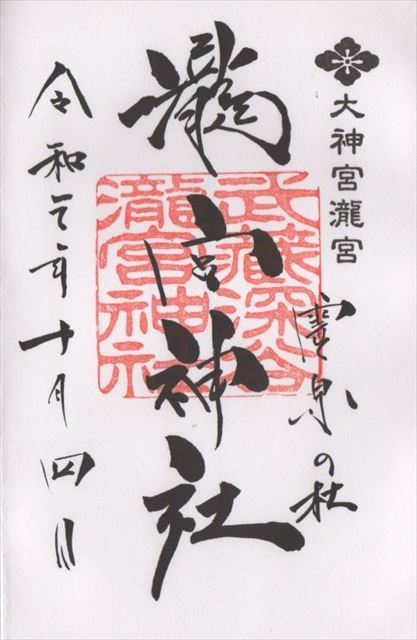 大神宮瀧宮
靈泉の杜
瀧宮神社
武蔵深谷
瀧宮神社
令和元年十月四日